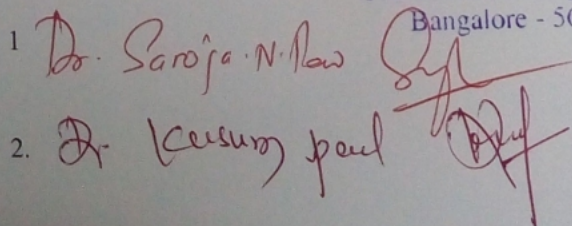 Bangalore - 5
1 Dr. Saroja. N. Rao
2. Dr Kusum paul